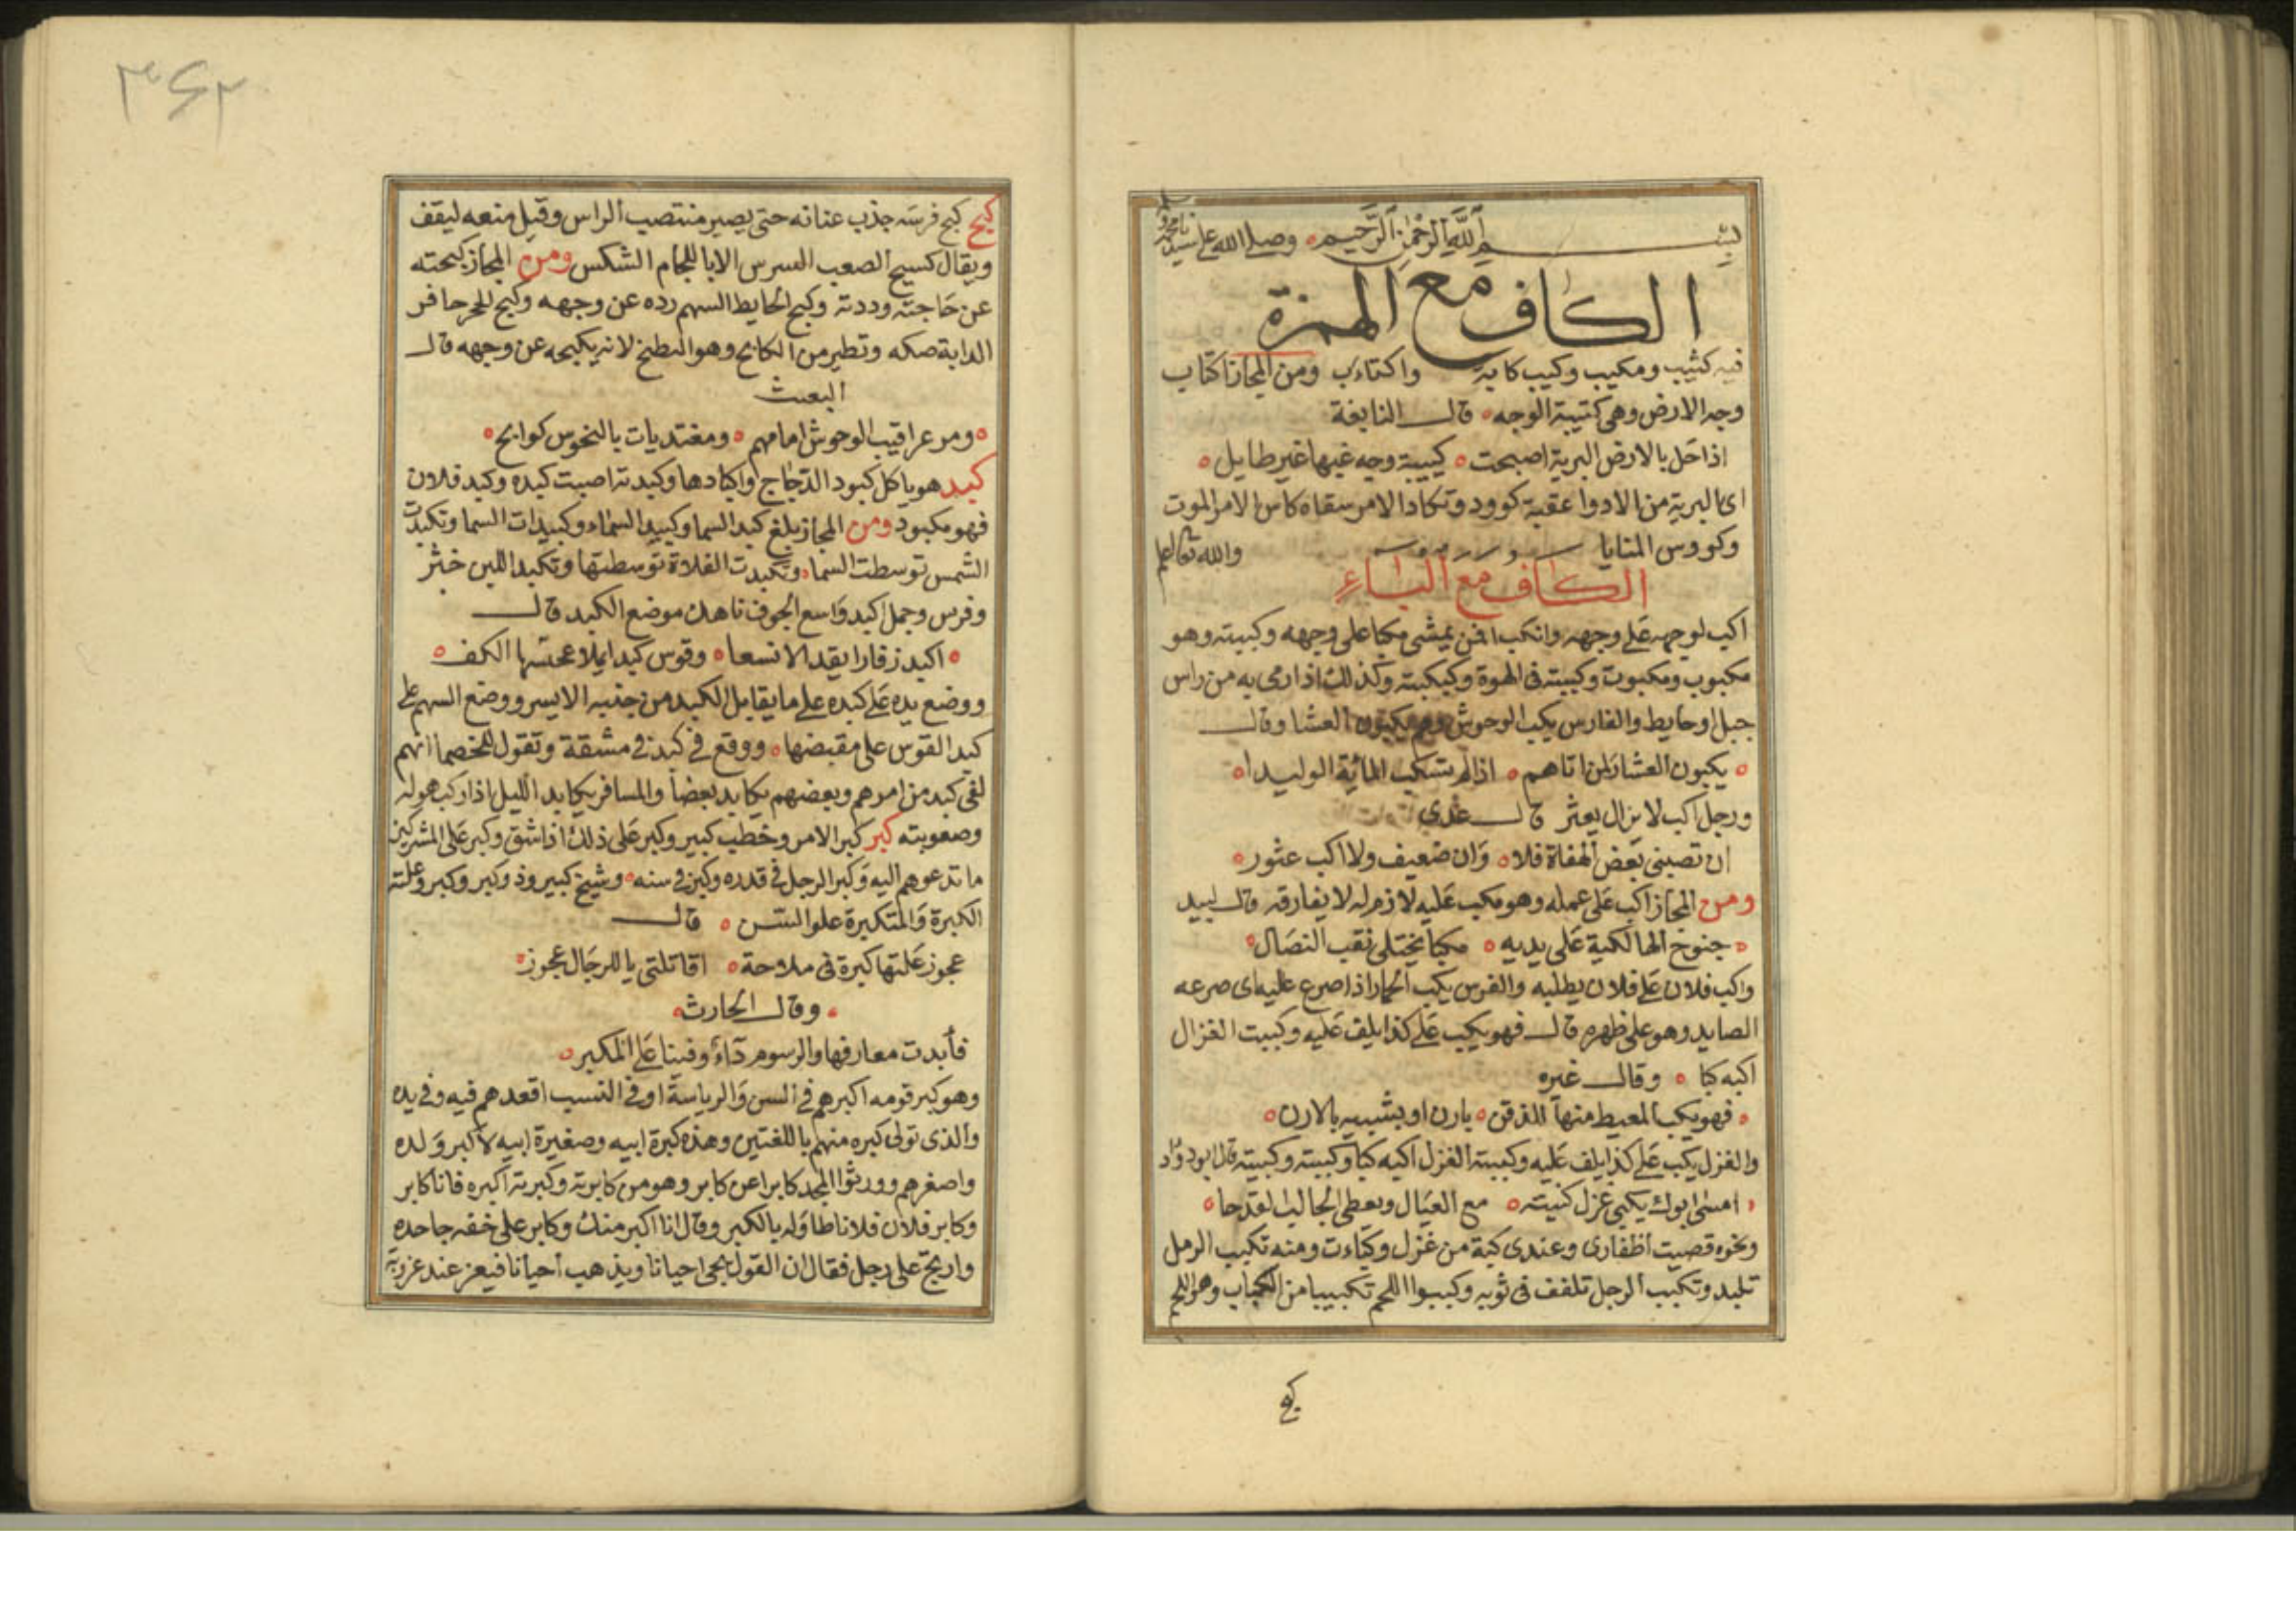 بسم الله الرحمن الرحيم وصلى الله على سيدنا محمد
الكاف مع الهمزة
فيه كئيب ومكيب وكيب كابة واكتاءب ومن المجاز اكتاب
وجه الارض وهى كتيبة الوجه قال النابغة
اذا حل بالارض البرية اصبحت كييبة وجه غبها غير طايل
اى البرية من الادوا عقبة كوود وتكاد الامر سقاه كاس الامر الموت
وكووس المنايا والله تعالى اعلم
الكاف مع الباء
اكب لوجهه على وجهه وانكب افمن يمشى مكبا على وجهه وكببته وهو
مكبوب ومكبوت وكببته فى الهوة وكبكبته وكذلك اذا رمى به من راس
جبل او حايط والفارس يكب الوحوش وهم يكبون العشا وقال
يكبون العشار لمن اتاهم اذا لم تسكب الماية الوليدا
ورجل اكب لا يزال يعثر قال عدي
ان تصبنى بعض الهفاة فلا وان ضعيف ولا اكب عثور
ومن المجاز اكب على عمله وهو مكب عليه لازم له لا يفارقه قال لبيد
جنوح الهالكية على يديه مكبا يختلى نقب النصال
واكب فلان على فلان يطلبه والفرس يكب الحمار اذا صرع عليه اى صرعه
الصايد وهو على ظهره قال فهو يكب على كذا يلف عليه وكببت الغزل
اكبه كبا وقال غيره
فهو يكب المعيط منها للذقن بارن او بشبيه بالارن
والغزل يكب على كذا يلف عليه وكببت الغزل اكبه كبا وكببته وكببته قال ابو دواد
امسى ابوك يكبى غزل كنيته مع العيال ويعطى الجالب لقدحا
ونحوه قصيت اظفارى وعندى كبة من غزل وكباءت ومنه تكبب الرمل
تلبد وتكبب الرجل تلفف فى ثوبه وكببوا اللحم تكبيبا من الكباب وهو اللحم
كبح
٣٤٢
كبح كبح فرسه جذب عنانه حتى يصير منتصب الراس وقيل منعه ليقف
ويقال كسيح الصعب الشرس الا باللجام الشكس ومن المجاز كبحته
عن حاجته ورددته وكبح الحايط السهم رده عن وجهه وكبح للحجر حافر
الدابة صكه وتطير من الكابح وهو النطيح لانه يكبحه عن وجهه قال
البعيث
ومر عراقيب الوحوش امامهم ومغتديات بالنحوس كوابح
كبد هو ياكل كبود الدجاج واكبادها وكبدته اصبت كبده وكبد فلان
فهو مكبود ومن المجاز بلغ كبد السما وكبيد السماء وكبيدات السما وتكبدت
الشمس توسطت السما وتكبدت الفلاة توسطتها وتكبد اللبن خثر
وفرس وجمل اكبد واسع الجوف ناهد موضع الكبد قال
اكبد زفارا يقد الانسعا وقوس كبدا يملا عجسها الكف
ووضع يده على كبده على ما يقابل الكبد من جنبه الايسر ووضع السهم على
كبد القوس على مقبضها ووقع فى كبد فى مشقة وتقول للخصما انهم
لفى كبد من امرهم وبعضهم يكابد بعضا والمسافر يكابد الليل اذا ركب هوله
وصعوبته كبر كبر الامر وخطب كبير وكبر على ذلك اذا شق وكبر على المشركين
ما تدعوهم اليه وكبر الرجل فى قدره وكبر فى سنه وشيخ كبير وذو كبر وكبر وعلته
الكبرة والمتكبرة علو السن قال
عجوز علتها كبرة فى ملاحة اقاتلتى يا للرجال عجوز
وقال الحارث
فأبدت معارفها والرسوم داء وفينا على المكبر
وهو كبر قومه اكبرهم فى السن والرياسة او فى النسب اقعدهم فيه وفى يده
والذى تولى كبره منهم باللغتين وهذه كبرة ابيه وصغيرة ابيه لاكبر ولده
واصغرهم وورثوا المجد كابرا عن كابر وهو من كابرته وكبرته اكبره فانا كابر
وكابر فلان فلانا طاوله بالكبر وقال انا اكبر منك وكابر على حقه جاحده
وارتج على رجل فقال ان القول يجى احيانا ويذهب احيانا فيعز عند عزوبه